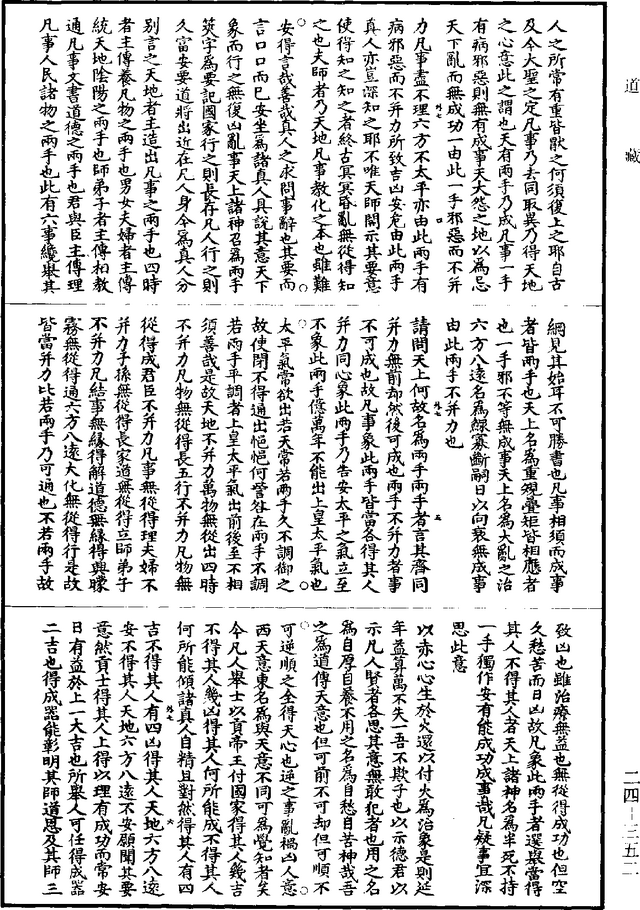 道藏
人之所常有重皆厭之何須復上之耶自古
及今大聖之定凡事乃去同取異乃得天地
之心意此之謂也天有兩手乃成凡事一手
有病邪惡則無有成事天大怨之地以爲忌
天下亂而無成功一由此一手邪惡而不并
力凡事盡不理六方不太平亦由此兩手有
病邪惡而不并力所致吉凶安危由此兩手
真人亦豈深知之耶不唯天師開示其要意
使得知之知之者終古冥冥昏亂無從得知
之也夫師者乃天地凡事教化之本也雖難
安得言哉善哉真人之求問事辭也其要而
言口口而已安坐爲諸真人具說其意天下
象而行之無復凶亂事天上諸神召爲兩手
筴字爲要記國家行之則長存凡人行之則
久富安要道將出近在凡人身今爲真人分
別言之天地者主造出凡事之兩手也四時
者主傳養凡物之兩手也男女夫婦者主傳
統天地陰陽之兩手也師弟子者主傳相教
通凡事文書道德之兩手也君與臣主傳理
凡事人民諸物之兩手也此有六事纔舉其
網見其始耳不可勝書也凡事相須而成事
者皆兩手也天上名爲重規疊矩皆相應者
也一手邪不等無成事天上名爲大亂之治
六方八遠名爲鰥寡斷嗣日以向衰無成事
由此兩手不并力也
請問天上何故名爲兩手兩手者言其齊同
并力無前却然後可成也兩手不并力者事
不可成也故凡事象此兩手皆當各得其人
并力同心象此兩手乃吉安太平之氣立至
不象此兩手億萬年不能出上皇太平氣也
太平氣常欲出若天常若兩手久不調御之
故使閉不得通出悒悒何訾咎在兩手不調
若兩手平調者上皇太平氣出前後至不相
須善哉是故天地不并力萬物無從出四時
不并力凡物無從得長五行不并力凡物無
從得成君臣不并力凡事無從得理夫婦不
并力子孫無從得長家道無從得立師弟子
不并力凡結事無緣得解道德無緣得興矇
霧無從得通六方八遠大化無從得行是故
皆當并力比若兩手乃可通也不若兩手故
致凶也雖治療無益也無從得成功也但空
久愁苦而日凶故凡象此兩手者選舉當得
其人不得其人者天上諸神名爲半死不持
一手獨作安有能成功成事哉凡疑事宜深
思此意
以赤心心生於火還以付火爲治象是則延
年益算萬不失一吾不欺子也以示德君以
示凡人賢者各思其意無敢犯者也用之名
爲自厚自養不用之名爲自愁自苦神哉吾
之爲道傳天意也但可前不可却但可順不
可逆順之全得天心也逆之事亂禍凶人意
西天意東名爲與天意不同可爲覺知者矣
今凡人舉士以貢帝王付國家得其人幾吉
不得其人幾凶得其人何所能成不得其人
何所能傾諸真人自精且對然得其人有四
吉不得其人有四凶得其人天地六方八遠
安不得其人天地六方八遠不安願聞其要
意然貢士得其人上得以理有成功而常安
日有益於上一大吉也所舉人可任得成器
二吉也得成器能彰明其師道恩及其師三
二四－三五二